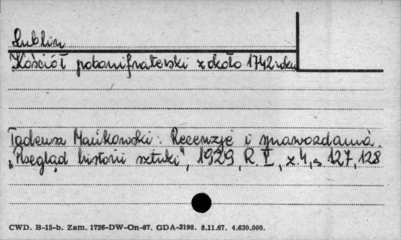 Lublin
Kościół pobonifraterski z około 1742 roku
Tadeusz Mańkowski: Recenzje i sprawozdania.
"Przegląd historii sztuki", 1929, R. I, z. 4, s. 127, 128
CWD. B-15-b. Zam. 1726-DW-On-67. GDA-3198. 8.11.67. 4.630.000.